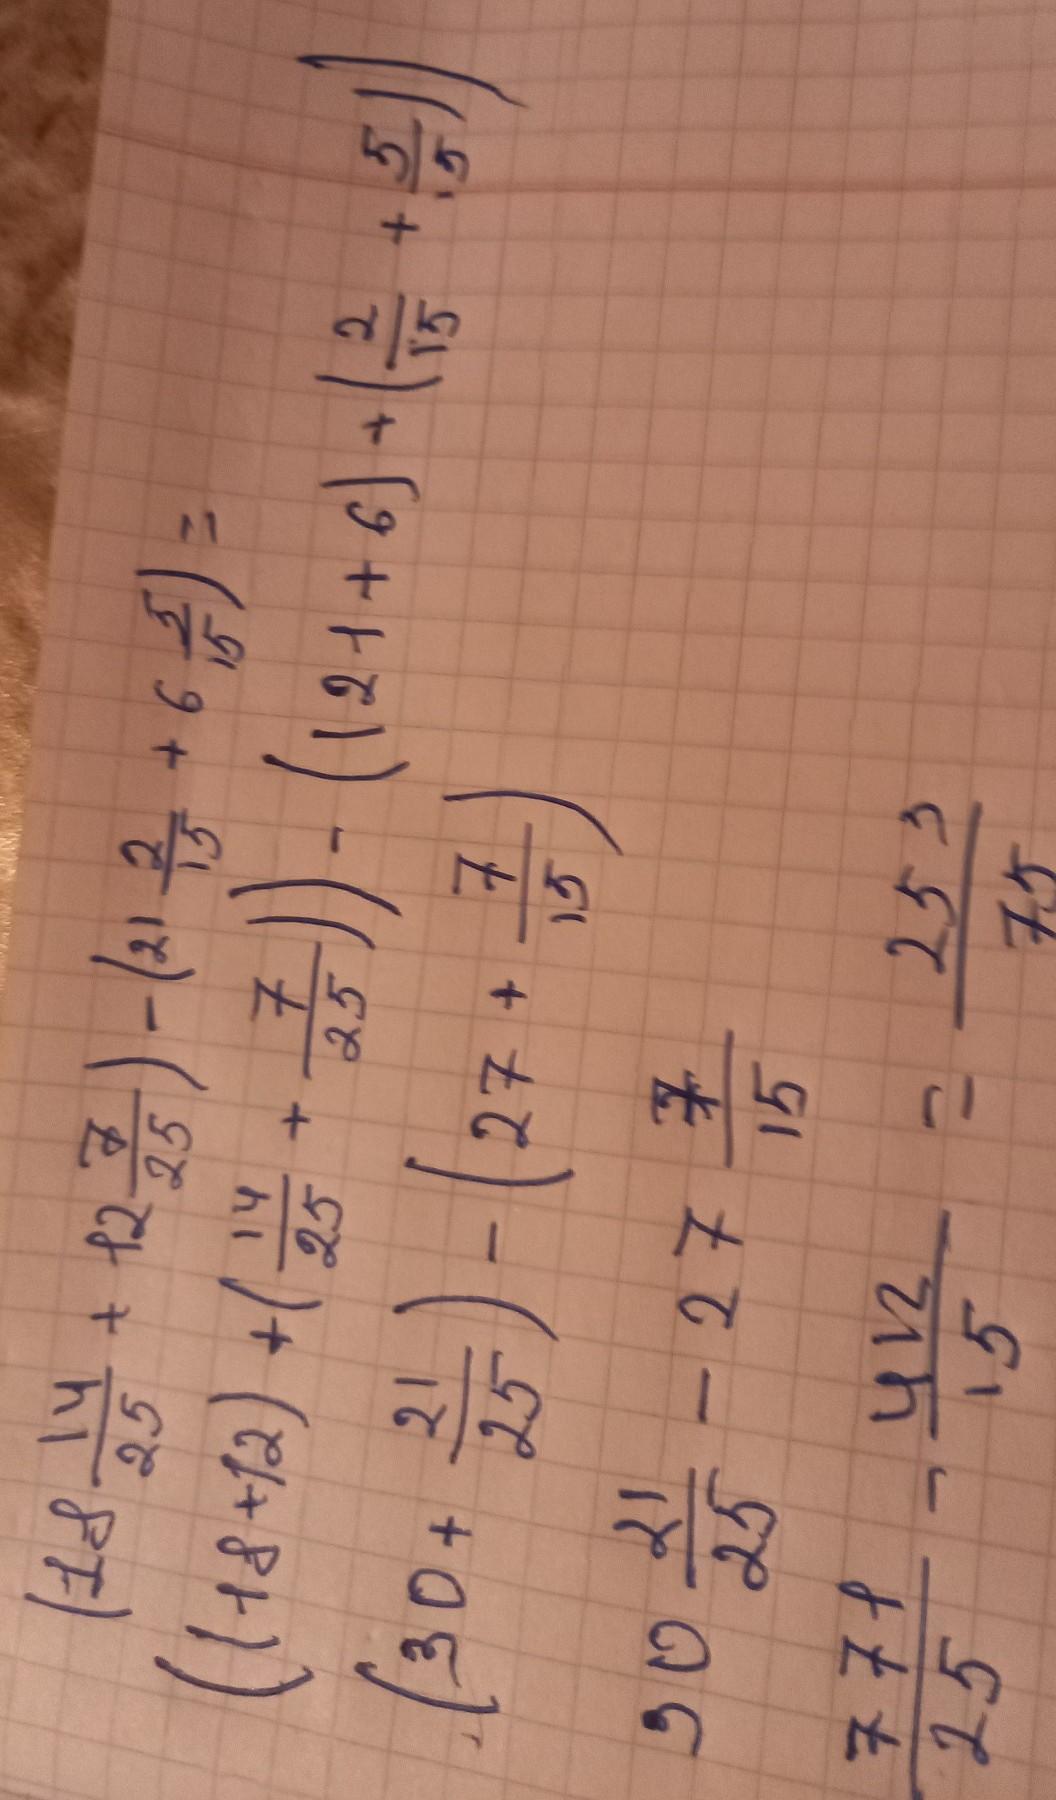 (18 14/25 + 12 7/25) - (21 2/15 + 6 5/15) =
((18+12) + (14/25 + 7/25)) - ((21+6) + (2/15 + 5/15))
(30 + 21/25) - (27 + 7/15)
30 21/25 - 27 7/15
771/25 - 412/15 = 253/75